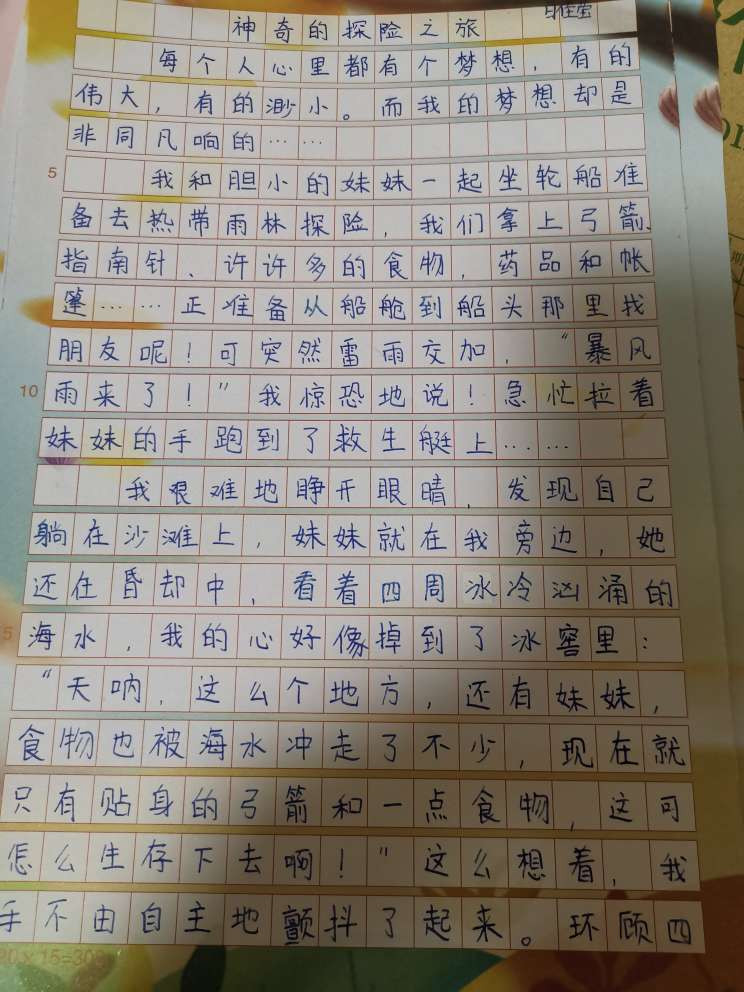 神奇的探险之旅
每个人心里都有个梦想，有的
伟大，有的渺小。而我的梦想却是
非同凡响的……
5
我和胆小的妹妹一起坐轮船准
备去热带雨林探险，我们拿上弓箭、
指南针、许许多多的食物，药品和帐
篷……正准备从船舱到船头那里找
朋友呢！可突然雷雨交加，“暴风
10
雨来了！”我惊恐地说！急忙拉着
妹妹的手跑到了救生艇上……
我艰难地睁开眼睛，发现自己
躺在沙滩上，妹妹就在我旁边，她
还在昏却中，看着四周冰冷汹涌的
5
海水，我的心好像掉到了冰窖里：
“天呐，这么个地方，还有妹妹，
食物也被海水冲走了不少，现在就
只有贴身的弓箭和一点食物，这可
怎么生存下去啊！”这么想着，我
手不由自主地颤抖了起来。环顾四
20×15=300